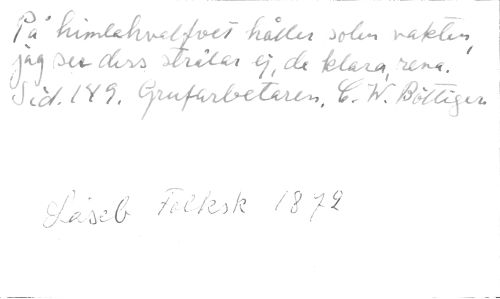 På himlahvalfvet håller solen vakten,
jag ser dess strålar ej, de klara, rena.
Sid. 189. Grufarbetaren, C. W. Böttiger
Läseb Folksk 1872